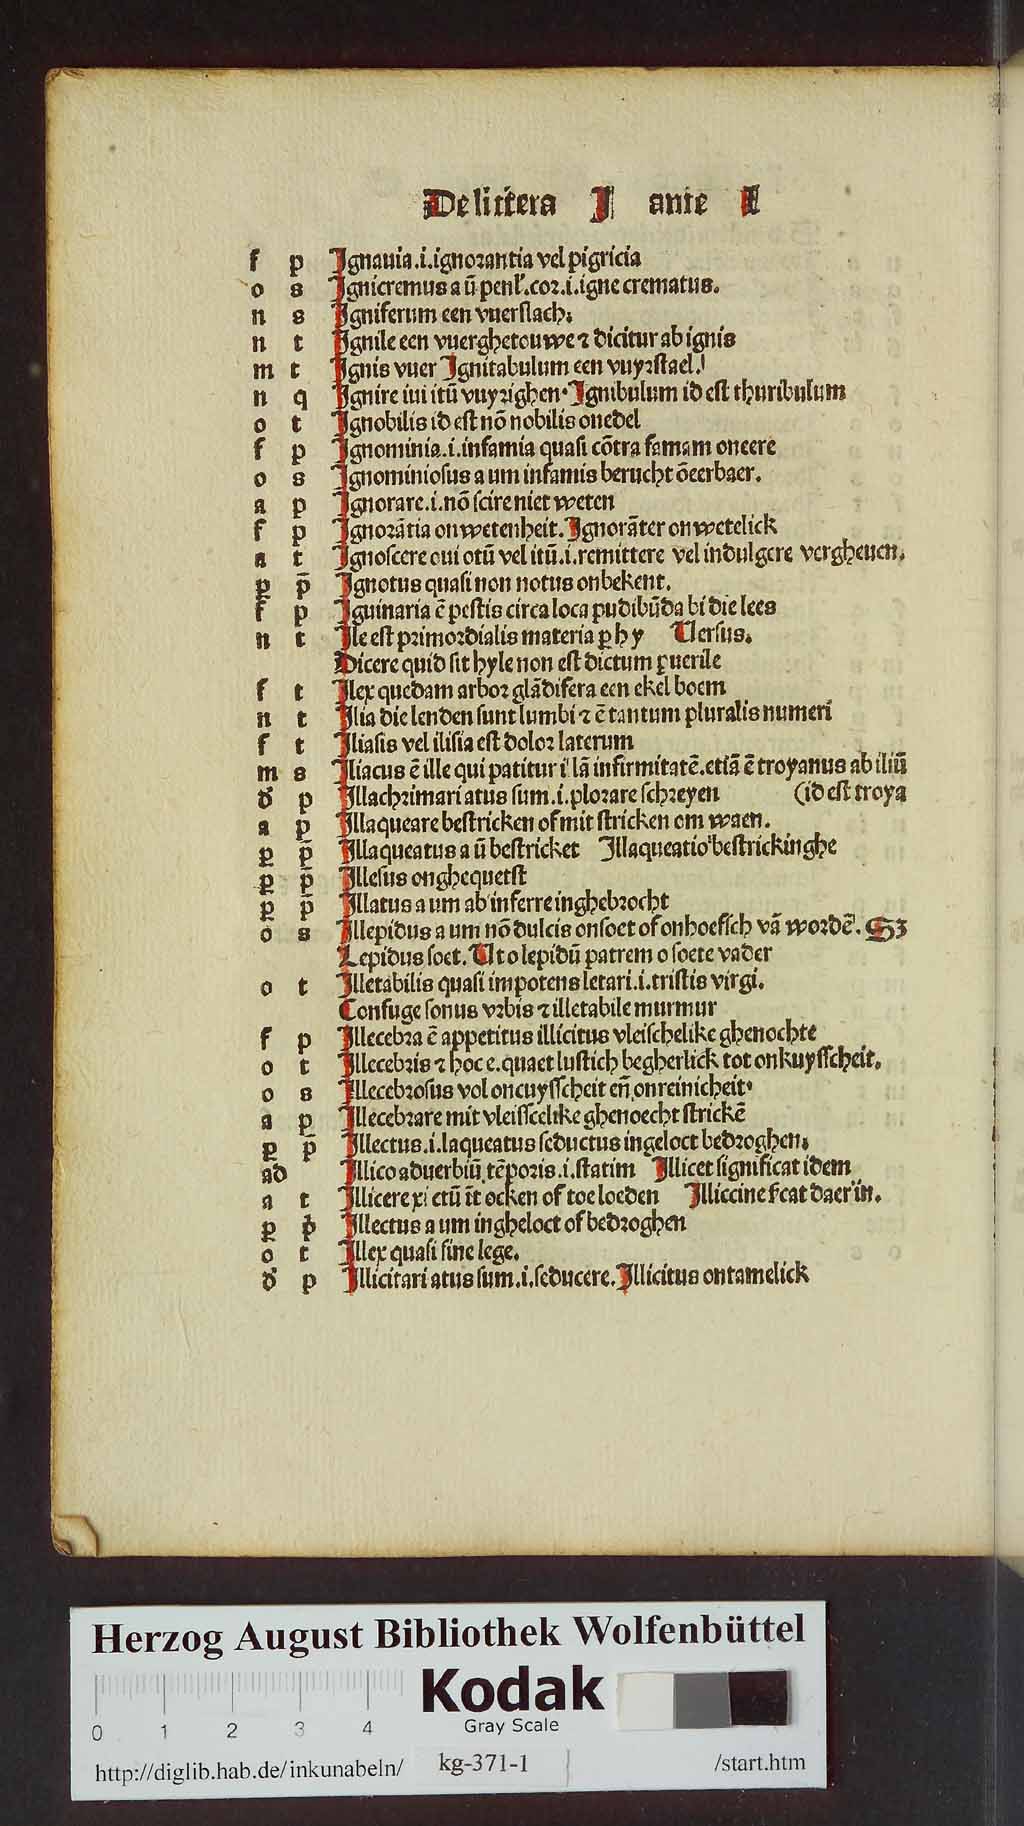 De littera I ante L
f p Ignauia.i.ignorantia vel pigricia
o s Ignicremus a ū penl'.cor.i.igne crematus.
n s Igniferum een vuerslach.
n t Ignile een vuerghetouwe ⁊ dicitur ab ignis
m t Ignis vuer Ignitabulum een vuyrstael.
n q Ignire iui itū vuyrighen. Ignibulum id est thuribulum
o t Ignobilis id est nō nobilis onedel
f p Ignominia.i.infamia quasi cōtra famam oneere
o s Ignominiosus a um infamis berucht ōeerbaer.
a p Ignorare.i.nō scire niet weten
f p Ignorātia onwetenheit. Ignorāter onwetelick
a t Ignoscere oui otū vel itū.i.remittere vel indulgere vergheuen.
ꝑ p̄ Ignotus quasi non notus onbekent.
f p Iguinaria ē pestis circa loca pudibūda bi die lees
n t Ile est primordialis materia ꝑ h y Uersus.
Dicere quid sit hyle non est dictum puerile
f t Ilex quedam arbor glādifera een ekel boem
n t Ilia die lenden sunt lumbi ⁊ ē tantum pluralis numeri
f t Iliasis vel ilisia est dolor laterum
m s Iliacus ē ille qui patitur il'lā infirmitatē.etiā ē troyanus ab iliū
d' p Illachrimari atus sum.i.plorare schreyen (id est troya
a p Illaqueare bestricken of mit stricken om waen.
ꝑ p̄ Illaqueatus a ū bestricket Illaqueatio bestrickinghe
ꝑ p̄ Illesus onghequetst
ꝑ p̄ Illatus a um ab inferre inghebrocht
o s Illepidus a um nō dulcis onsoet of onhoefsch vā wordē. Sꝫ
Lepidus soet. Ut o lepidū patrem o soete vader
o t Illetabilis quasi impotens letari.i.tristis virgi.
Confuge sonus vrbis ⁊ illetabile murmur
f p Illecebra ē appetitus illicitus vleischelike ghenochte
o t Illecebris ⁊ hoc e.quaet lustich begherlick tot onkuysscheit.
o s Illecebrosus vol oncuysscheit eñ onreinicheit
a p Illecebrare mit vleisscelike ghenoecht strickē
ꝑ p̄ Illectus.i.laqueatus seductus ingeloct bedroghen.
ad Illico aduerbiū tēporis.i.statim Illicet significat idem
a t Illicere xi ctū īt ocken of toe loeden Illiccine fcat daer in.
ꝑ p̄ Illectus a um ingheloct of bedroghen
o t Illex quasi sine lege.
d' p Illicitari atus sum.i.seducere. Illicitus ontamelick
Herzog August Bibliothek Wolfenbüttel
Kodak
Gray Scale
0 1 2 3 4
http://diglib.hab.de/inkunabeln/ kg-371-1 /start.htm